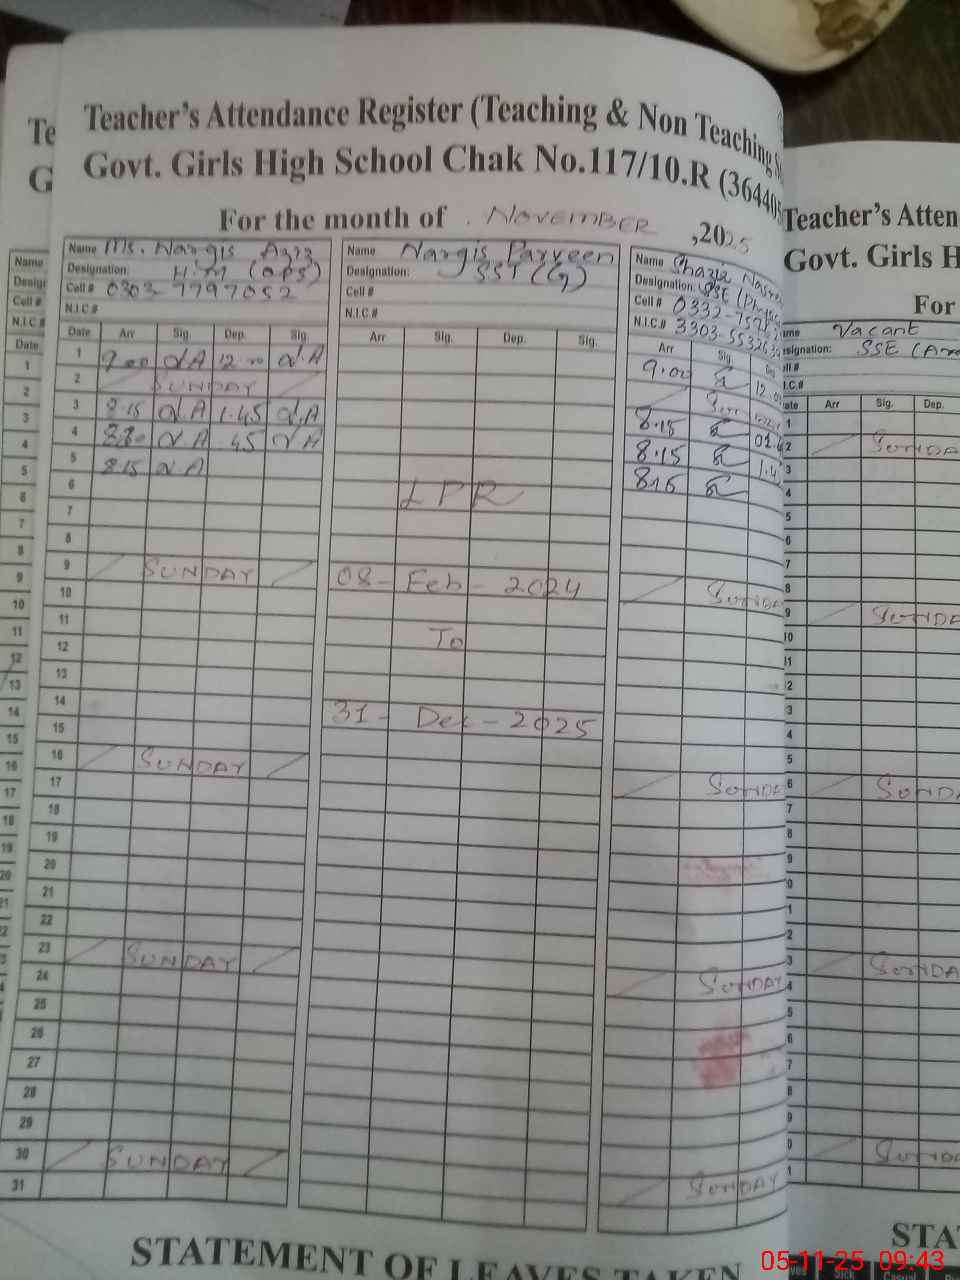 Teacher's Attendance Register (Teaching & Non Teaching S
Govt. Girls High School Chak No.117/10.R (364405
For the month of November ,2025
Name Ms. Nargis Aziz
Designation: H.M (ops)
Cell # 0303-7797052
N.I.C #
Date Arr Sig. Dep. Sig.
1 9.00 N.A 12.00 N.A
2 SUNDAY
3 8.15 N.A 1.45 N.A
4 N.A 45 N.A
5 8.15 N.A
6
7
8
9 SUNDAY
10
11
12
13
14
15
16 SUNDAY
17
18
19
20
21
22
23 SUNDAY
24
25
26
27
28
29
30 SUNDAY
31
Name Nargis Parveen
Designation: SST (G)
Cell #
N.I.C #
Arr Sig. Dep. Sig.
LPR
08-Feb-2024
To
31-Dec-2025
Name Shazia
Designation: SSE
Cell # 0332-
N.I.C.# 3303-
Arr Sig. De
9.00 12.0
8.15
8.15 1.4
8.15
SUNDA
SUNDA
SUNDAY
SUNDAY
STATEMENT OF LEAVES TAKEN
Te
G
Name
Design
Cell #
N.I.C #
Date
1
2
3
4
5
6
7
8
9
10
11
12
13
14
15
16
17
18
19
20
21
Teacher's Atten
Govt. Girls H
For
ame Vacant
esignation: SSE
ell #
I.C.#
ate Arr Sig. Dep.
SUNDA
SUNDA
SUNDA
SUNDA
SUNDA
STA
05-11-25 09:43